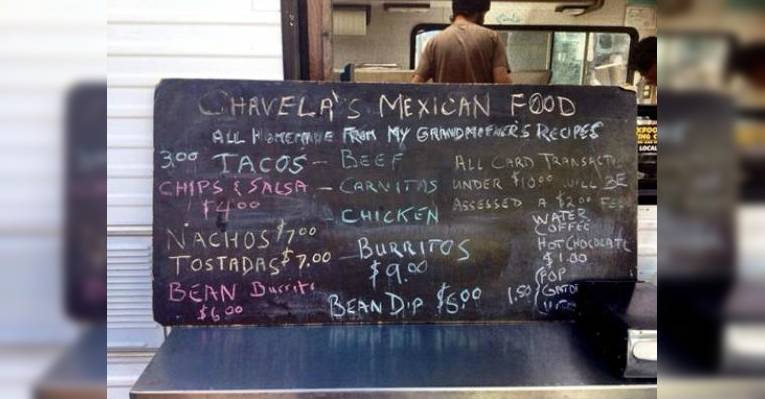 CHAVELA'S MEXICAN FOOD
ALL HOMEMADE FROM MY GRANDMOTHER'S RECIPES
3.00 TACOS - BEEF
CHIPS & SALSA - CARNITAS
$4.00
CHICKEN
ALL CARD
UNDER $10.00 WILL BE
ASSESSED A $2.00 FEE
NACHOS $7.00
TOSTADAS $7.00
BURRITOS
$9.00
BEAN Burrito
$6.00
BEAN DIP $5.00
WATER
COFFEE
HOT CHOCOLATE
$1.00
POP
1.50
LOCAL